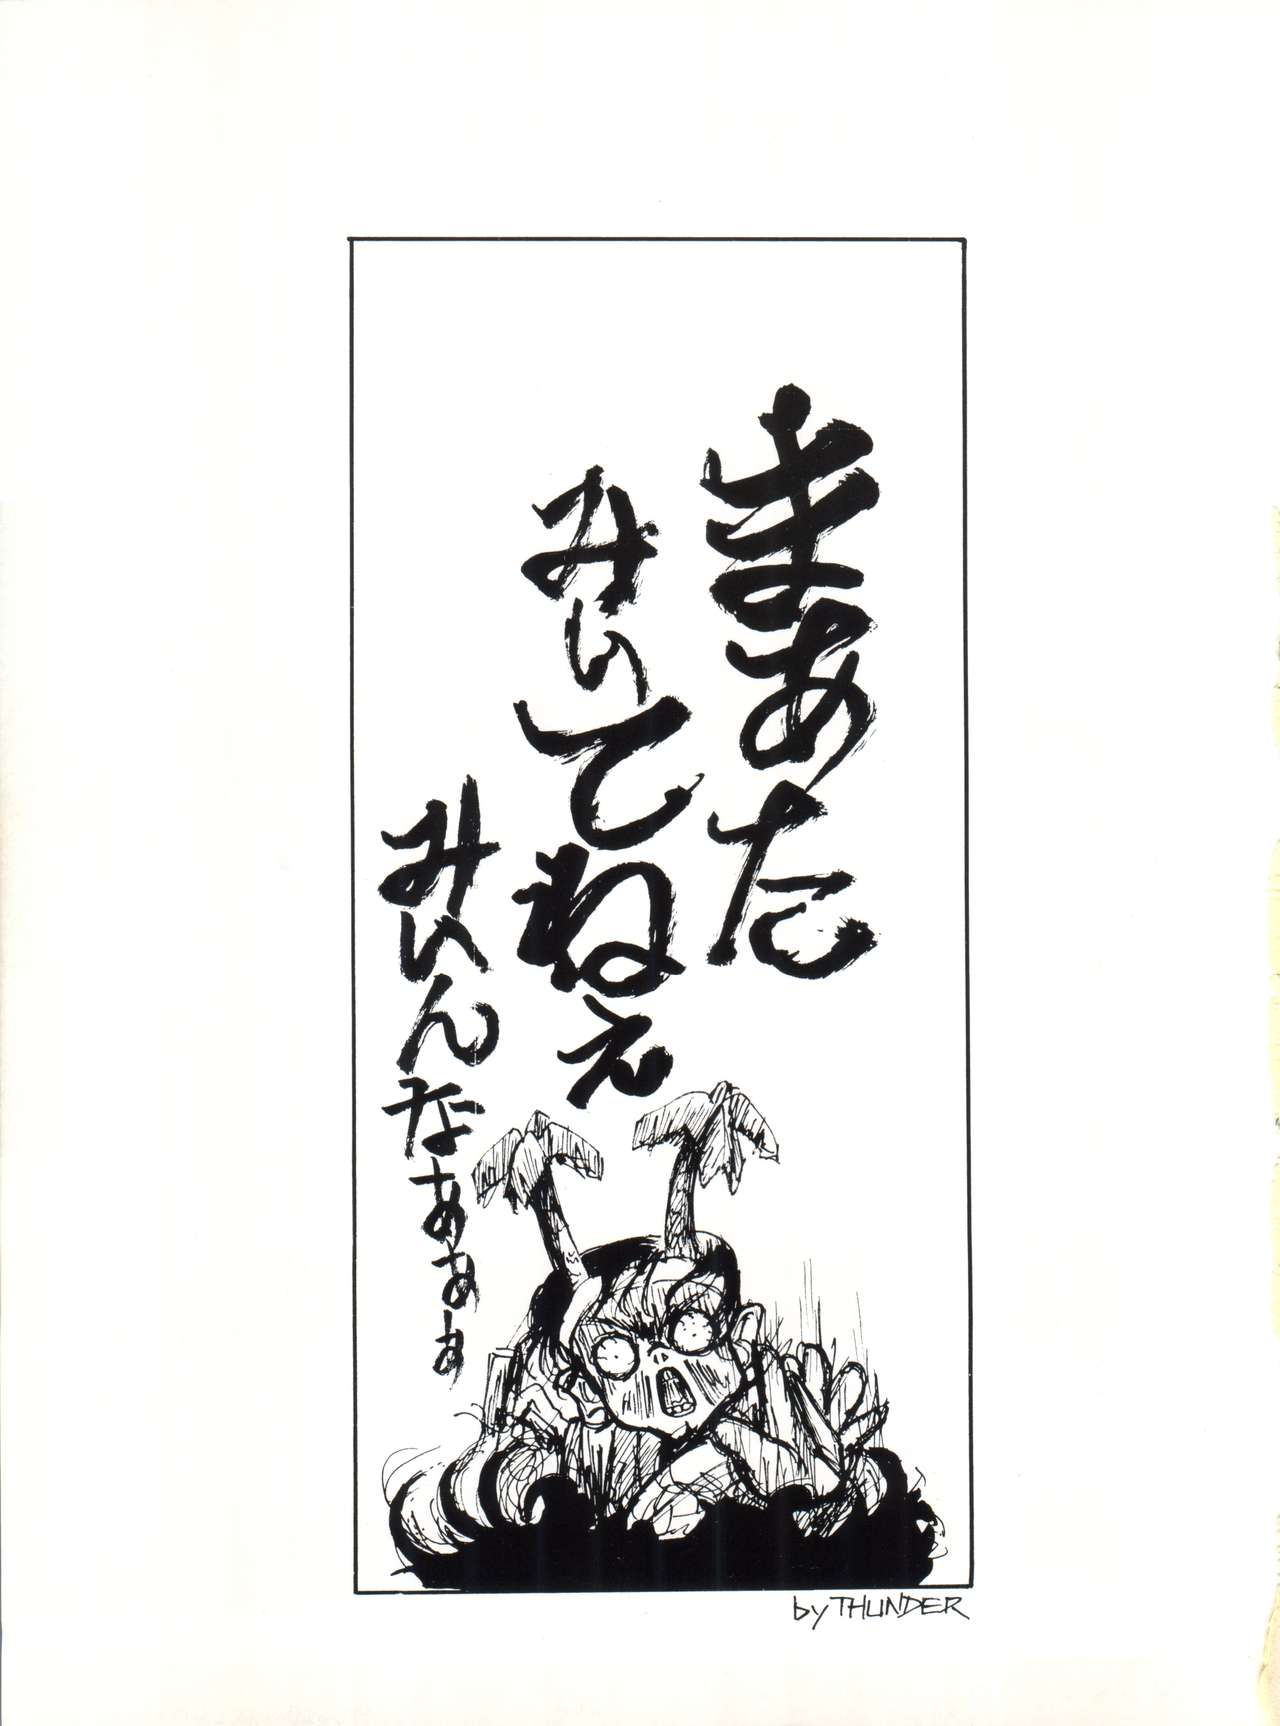 まあた
みぃてねえ
みぃんなあぁぁ
by THUNDER